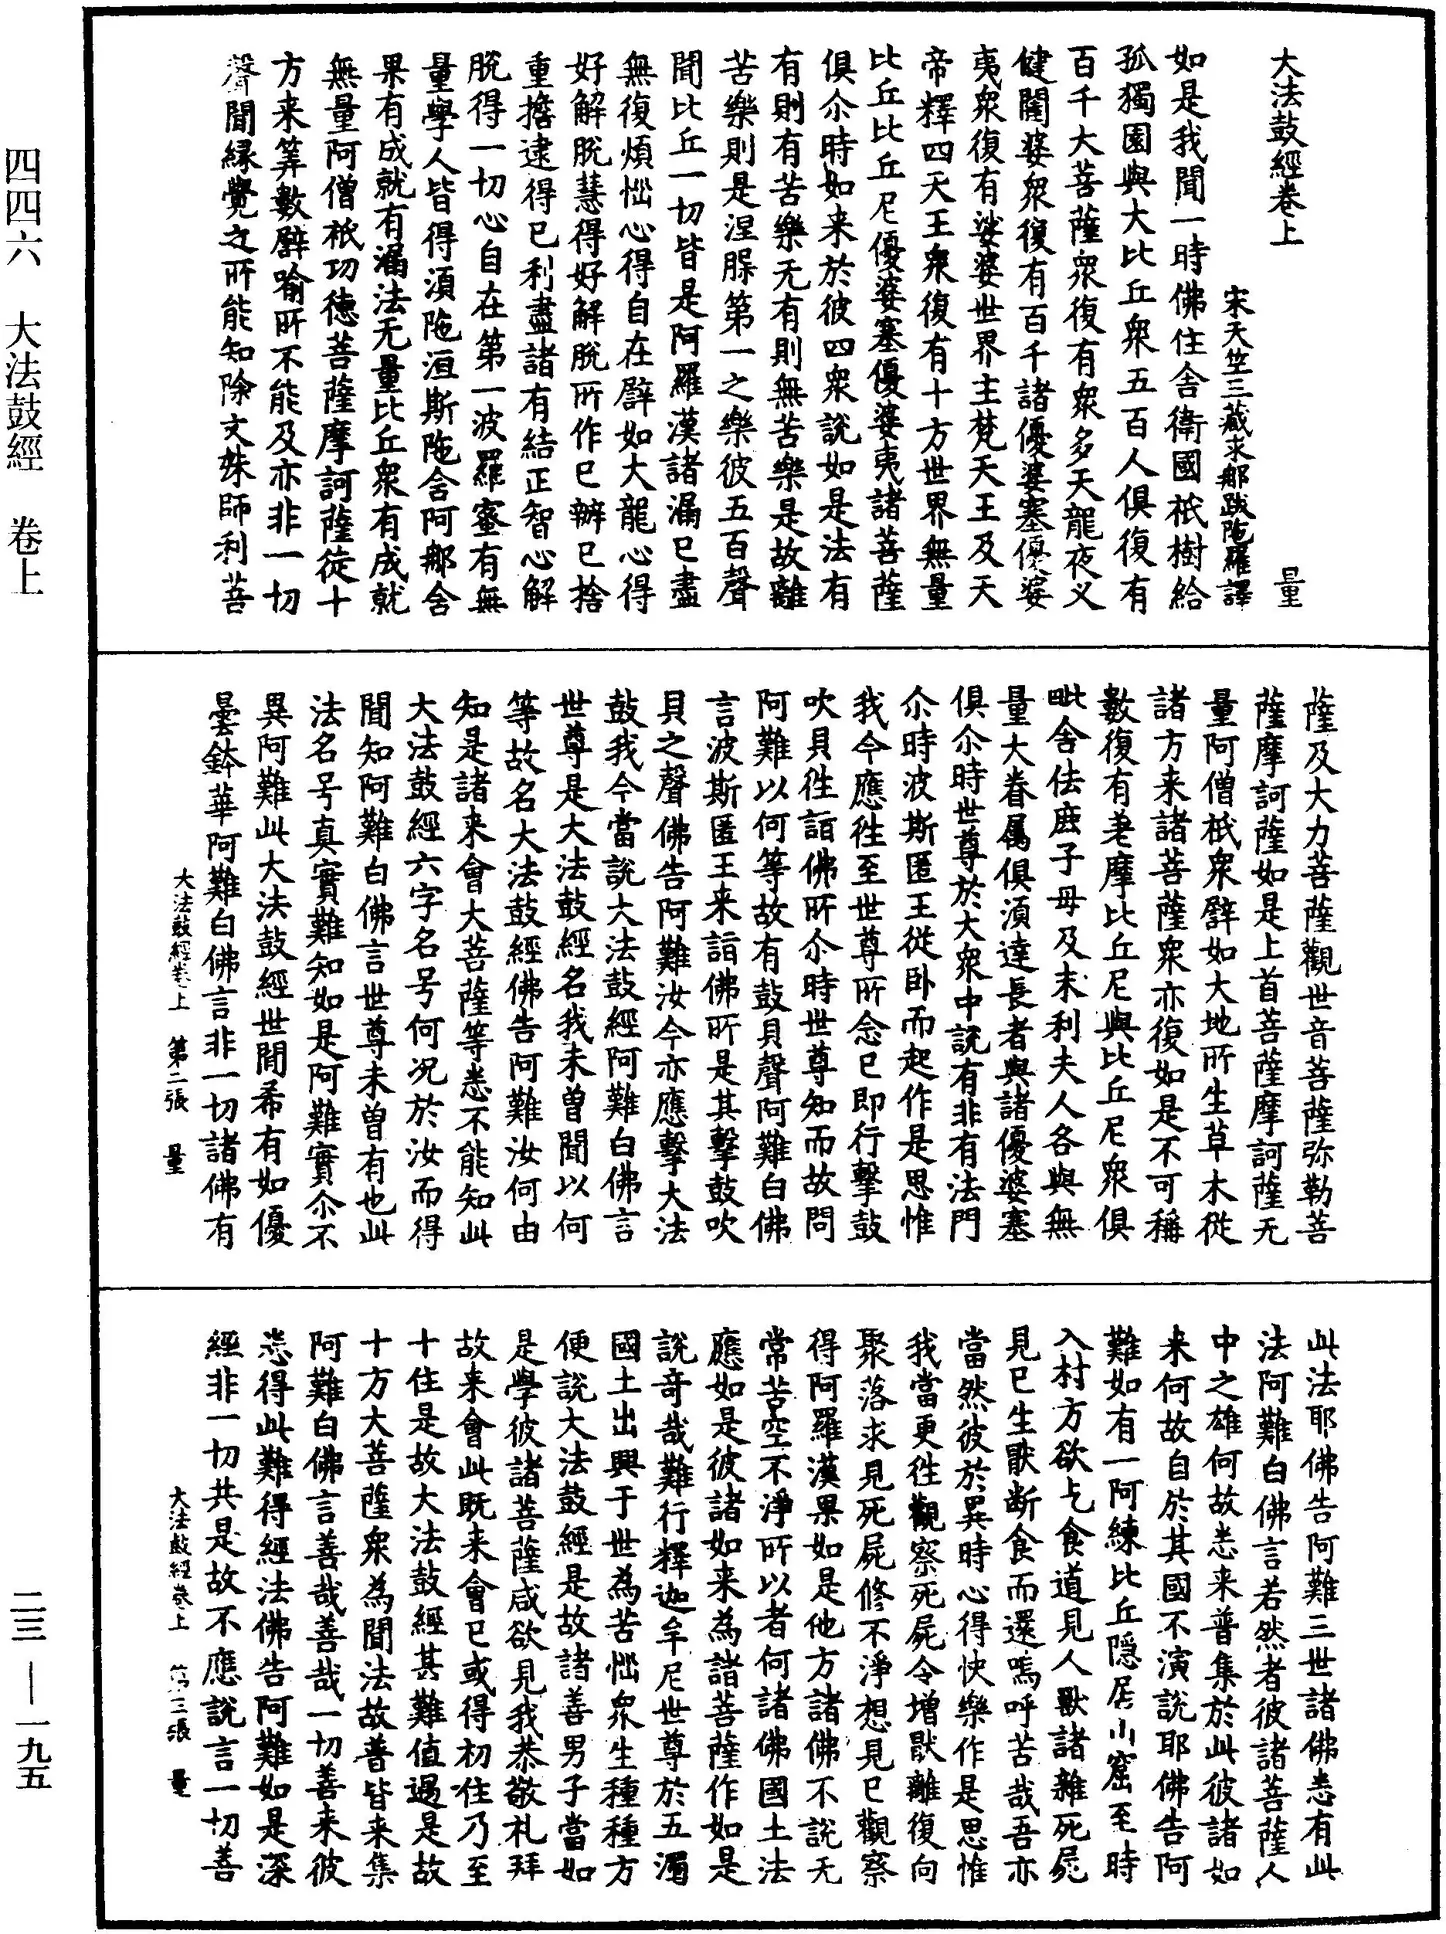 大法鼓經卷上
量
宋天竺三藏求那跋陁羅譯
如是我聞一時佛住舍衛國祇樹給
孤獨園與大比丘衆五百人俱復有
百千大菩薩衆復有衆多天龍夜义
健闥婆衆復有百千諸優婆塞優婆
夷衆復有娑婆世界主梵天王及天
帝釋四天王衆復有十方世界無量
比丘比丘尼優婆塞優婆夷諸菩薩
俱尒時如来於彼四衆說如是法有
有則有苦樂无有則無苦樂是故離
苦樂則是涅槃第一之樂彼五百聲
聞比丘一切皆是阿羅漢諸漏已盡
無復煩惱心得自在譬如大龍心得
好解脫慧得好解脫所作已辦已捨
重擔逮得已利盡諸有結正智心解
脫得一切心自在第一波羅蜜有無
量學人皆得湏陁洹斯陁含阿那含
果有成就有漏法无量比丘衆有成就
無量阿僧祇功德菩薩摩訶薩從十
方来筭數譬喻所不能及亦非一切
聲聞緣覺之所能知除文殊師利菩
薩及大力菩薩觀世音菩薩弥勒菩
薩摩訶薩如是上首菩薩摩訶薩无
量阿僧祇衆譬如大地所生草木從
諸方来諸菩薩衆亦復如是不可稱
數復有差摩比丘尼與比丘尼衆俱
毗舍佉庶子母及末利夫人各與無
量大眷属俱湏達長者與諸優婆塞
俱尒時世尊於大衆中說有非有法門
尒時波斯匿王從卧而起作是思惟
我今應徃至世尊所念已即行擊鼓
吹貝徃詣佛所尒時世尊知而故問
阿難以何等故有鼓貝聲阿難白佛
言波斯匿王来詣佛所是其擊鼓吹
貝之聲佛告阿難汝今亦應擊大法
鼓我今當說大法鼓經阿難白佛言
世尊是大法鼓經名我未曾聞以何
等故名大法鼓經佛告阿難汝何由
知是諸来會大菩薩等悉不能知此
大法鼓經六字名号何况於汝而得
聞知阿難白佛言世尊未曾有也此
法名号真實難知如是阿難實尒不
異阿難此大法鼓經世間希有如優
曇鉢華阿難白佛言非一切諸佛有
大法鼓經卷上　第二張　量
此法耶佛告阿難三世諸佛悉有此
法阿難白佛言若然者彼諸菩薩人
中之雄何故悉来普集於此彼諸如
来何故自於其國不演說耶佛告阿
難如有一阿練比丘隱居山窟至時
入村方欲乞食道見人獸諸雜死屍
見已生猒断食而還嗚呼苦哉吾亦
當然彼於異時心得快樂作是思惟
我當更徃觀察死屍令增猒離復向
聚落求見死屍修不淨想見已觀察
得阿羅漢果如是他方諸佛不說无
常苦空不淨所以者何諸佛國土法
應如是彼諸如来為諸菩薩作如是
說竒哉難行釋迦牟尼世尊於五濁
國土出興于世為苦惱衆生種種方
便說大法鼓經是故諸善男子當如
是學彼諸菩薩咸欲見我恭敬礼拜
故来會此既来會已或得初住乃至
十住是故大法鼓經甚難值遇是故
十方大菩薩衆為聞法故普皆来集
阿難白佛言善哉善哉一切善来彼
悉得此難得經法佛告阿難如是深
經非一切共是故不應說言一切善
大法鼓經卷上　第三張　量
四四六　大法鼓經　卷上
二三—一九五